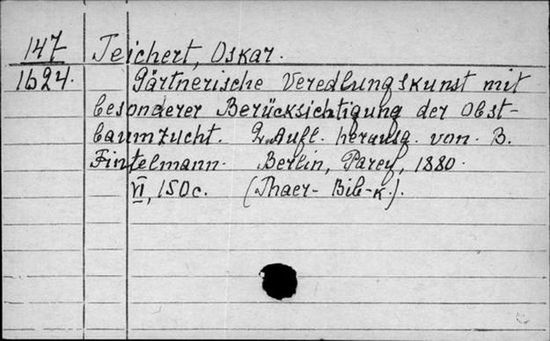 147 Teichert, Oskar.
1624. Gärtnerische Veredlungskunst mit
besonderer Berücksichtigung der Obst-
baumzucht. 2. Aufl. herausg. von. B.
Fintelmann. Berlin, Parey, 1880.
VI, 150 c. (Thaer-Bib-k.).